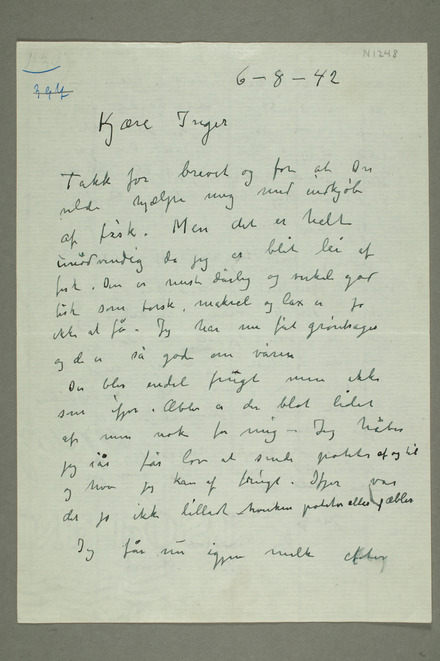 N1248
394
6-8-42
Kjære Inger
Takk for brevet og for at Du
vilde hjælpe mig med indkjøb
af fisk. Men det er helt
unødvendig da jeg er blit lei af
fisk. Den er mest dårlig og enkel god
fisk som torsk, makrel og lax er jo
ikke at få. Jeg har nu fåt grøntsager
og de er så gode om våren
Der blev endel frugt men ikke
som ifjor. Æbler er der blot lidet
af men nok for mig – Jeg håber
jeg får lov at sende poteter af og til
og hva jeg kan af frugt. Ifjor var
det jo ikke tilladt hverken poteter eller æbler
Jeg får nu igjen melk efter